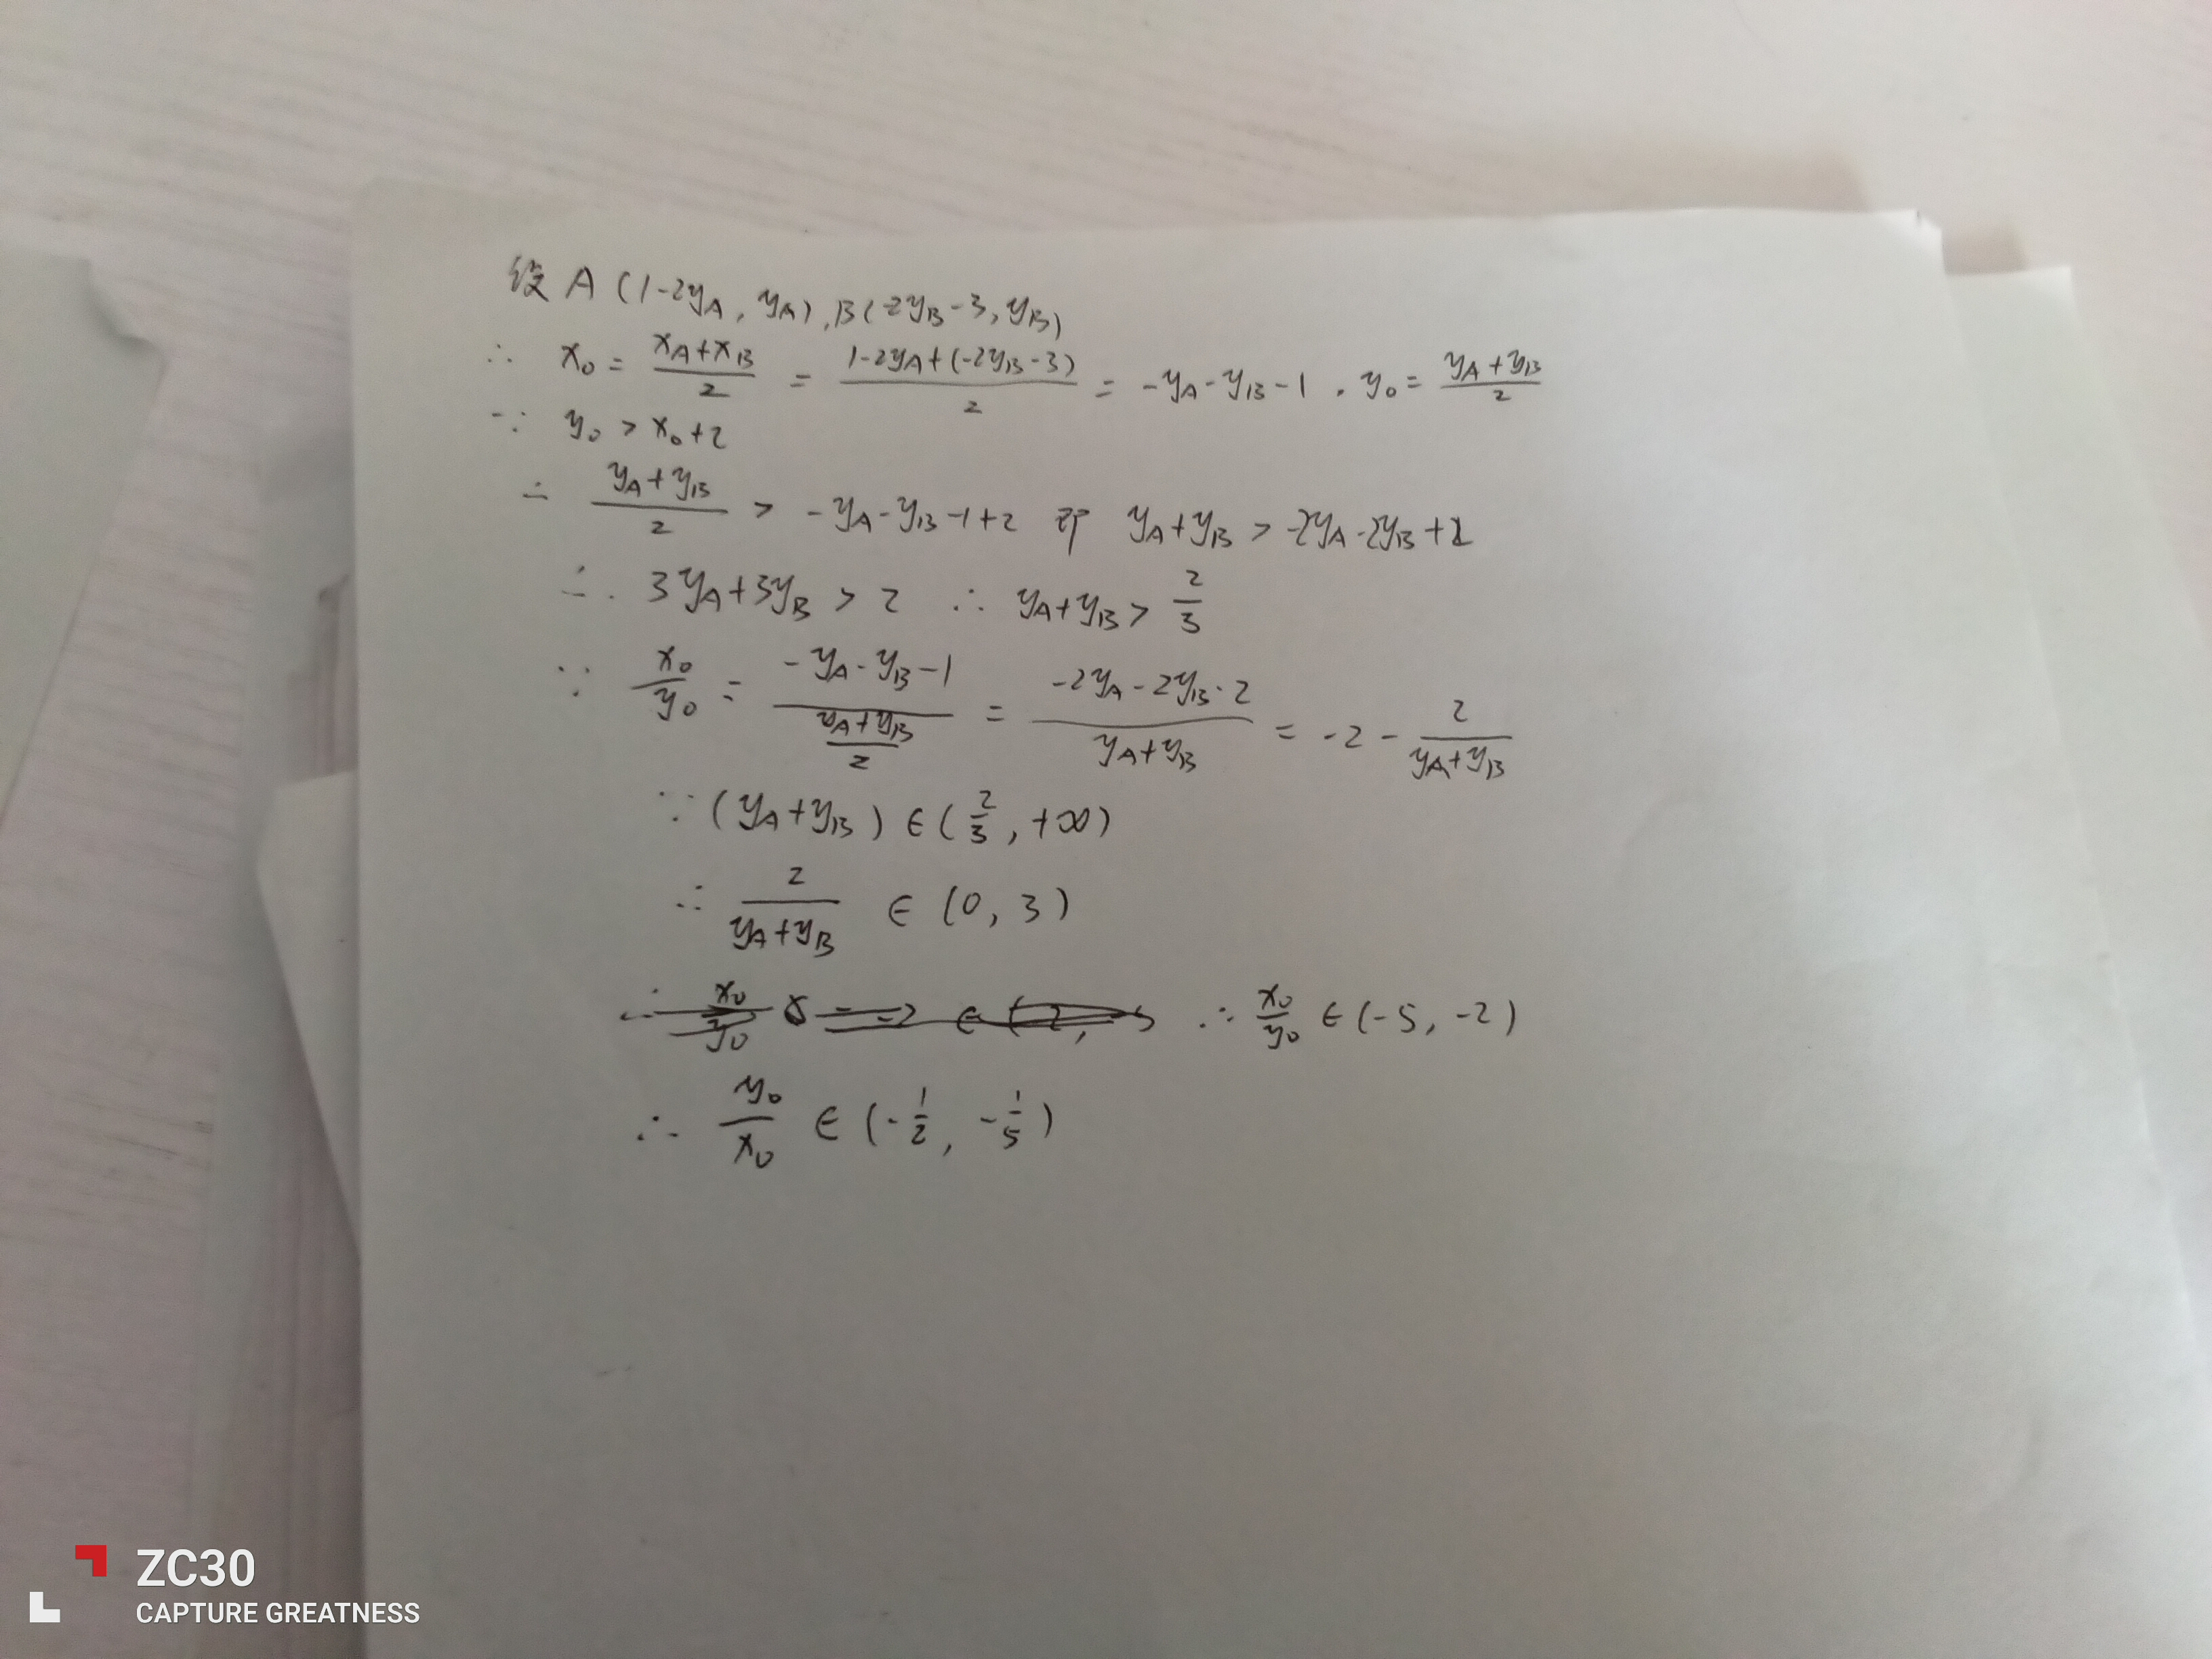 设 A (1-2y_A, y_A), B(-2y_B-3, y_B)
∴ x_0 = \frac{x_A+x_B}{2} = \frac{1-2y_A+(-2y_B-3)}{2} = -y_A-y_B-1, y_0 = \frac{y_A+y_B}{2}
∵ y_0 > x_0+2
∴ \frac{y_A+y_B}{2} > -y_A-y_B-1+2 即 y_A+y_B > -2y_A-2y_B+2
∴ 3y_A+3y_B > 2 ∴ y_A+y_B > \frac{2}{3}
∵ \frac{x_0}{y_0} = \frac{-y_A-y_B-1}{\frac{y_A+y_B}{2}} = \frac{-2y_A-2y_B-2}{y_A+y_B} = -2-\frac{2}{y_A+y_B}
∵ (y_A+y_B) ∈ (\frac{2}{3}, +∞)
∴ \frac{2}{y_A+y_B} ∈ (0, 3)
∴ \frac{x_0}{y_0} ∈ (-5, -2)
∴ \frac{y_0}{x_0} ∈ (-\frac{1}{2}, -\frac{1}{5})
ZC30
CAPTURE GREATNESS